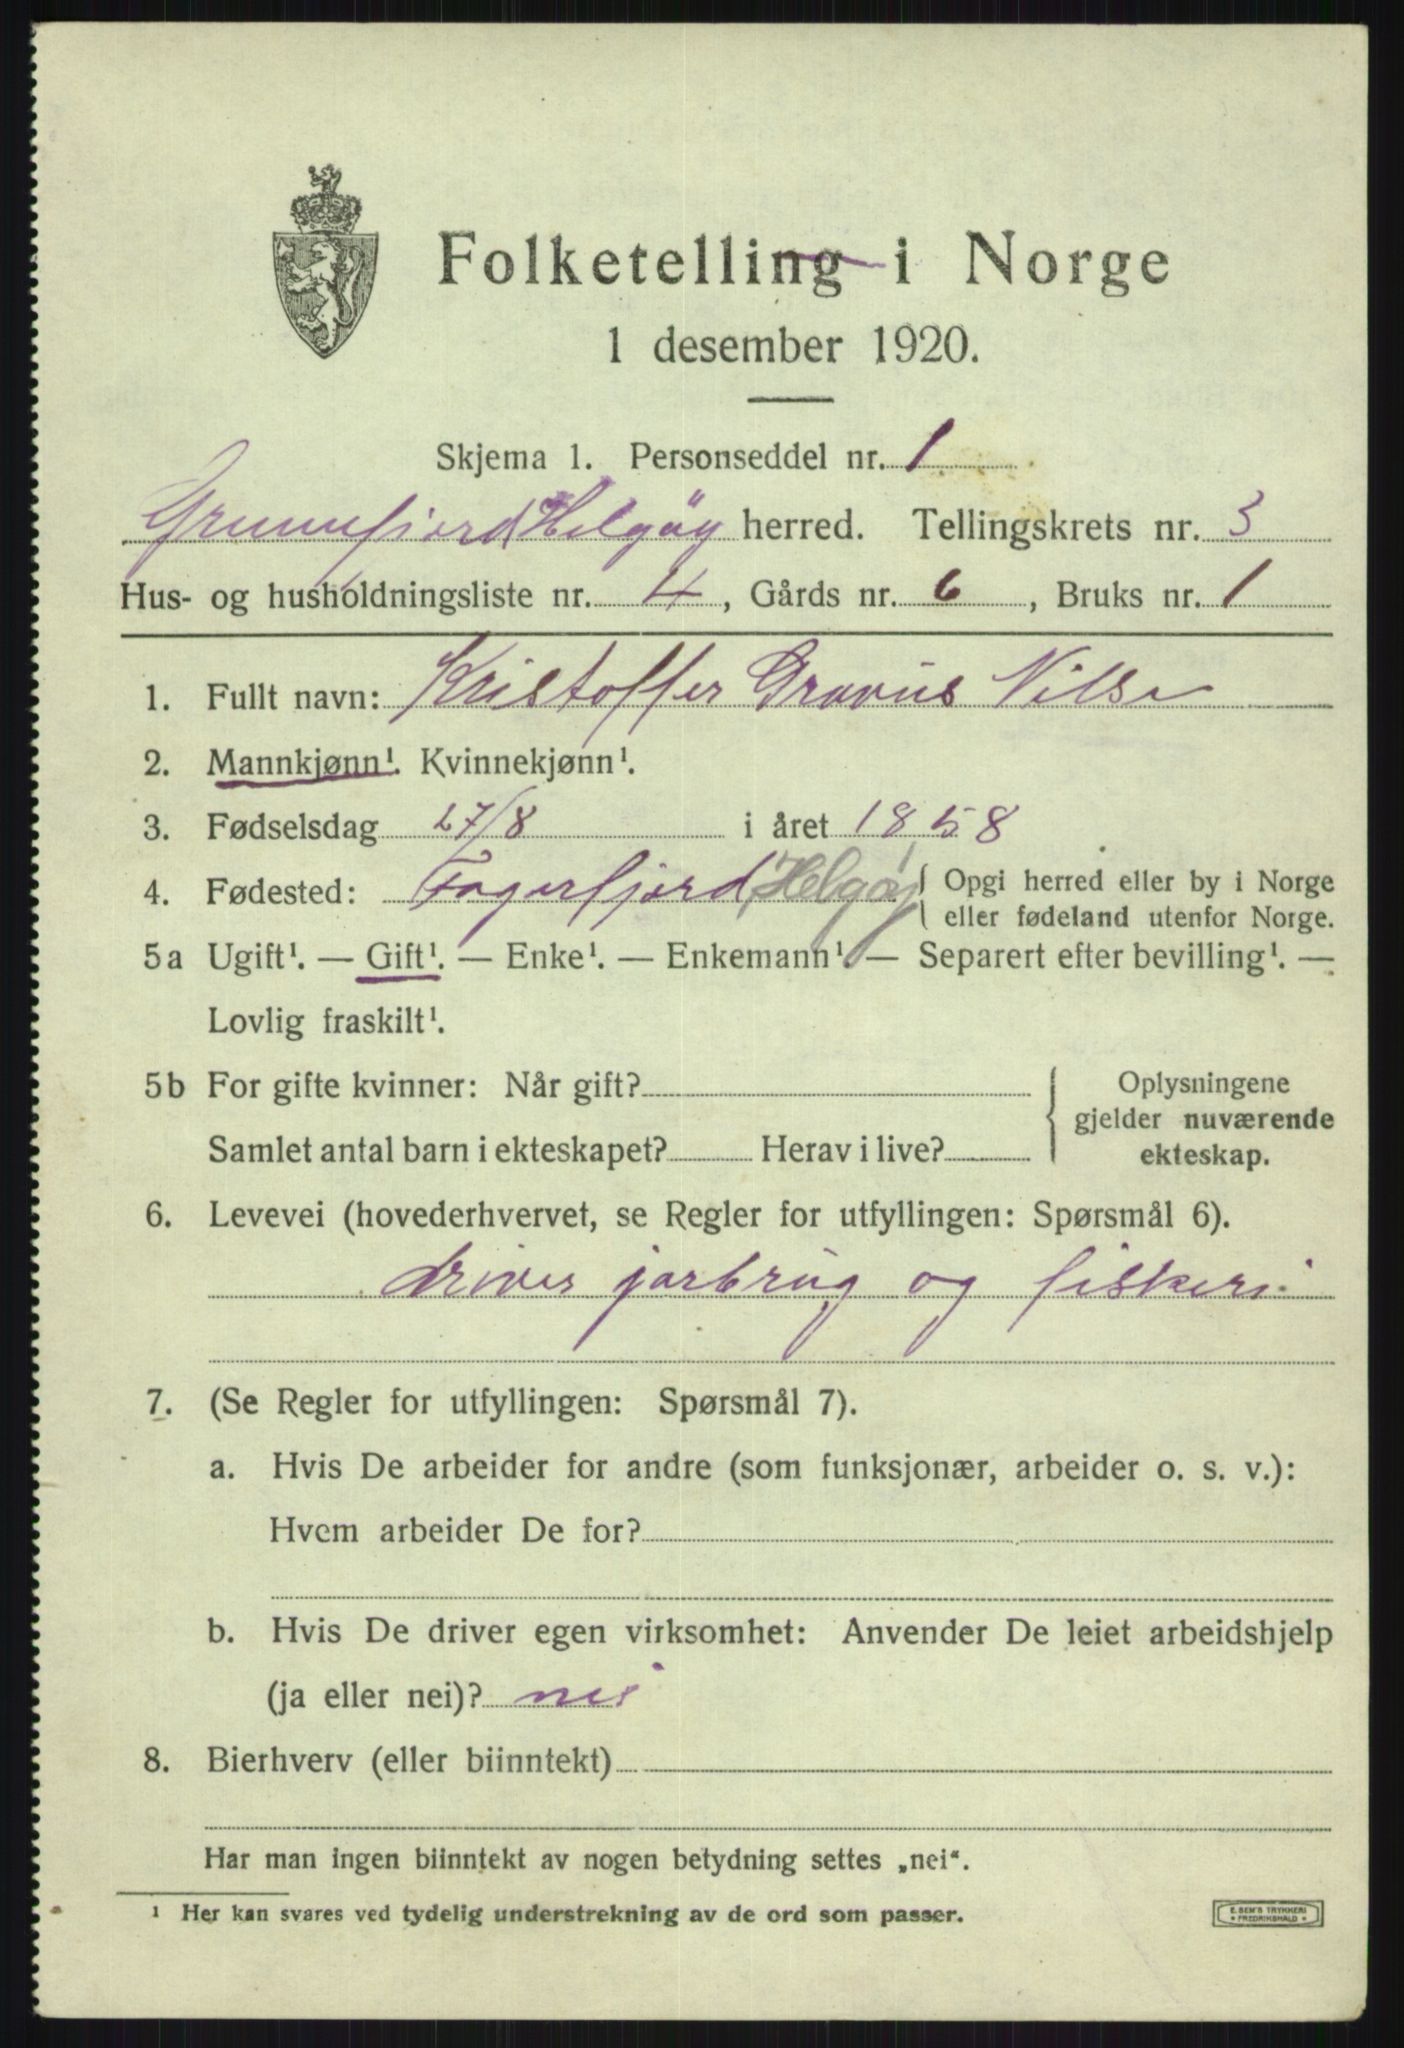 Folketelling i Norge
1 desember 1920.
Skjema 1. Personseddel nr. 1
Grunnfjord Helgöy herred. Tellingskrets nr. 3
Hus- og husholdningsliste nr. 4, Gårds nr. 6, Bruks nr. 1
1. Fullt navn: Kristoffer Nilse
2. Mannkjønn¹. Kvinnekjønn¹.
3. Fødselsdag 27/8 i året 1858
4. Fødested: Fagerfjord Helgöy { Opgi herred eller by i Norge
eller fødeland utenfor Norge.
5a Ugift¹. — Gift¹. — Enke¹. — Enkemann¹. — Separert efter bevilling¹. —
Lovlig fraskilt¹.
5b For gifte kvinner: Når gift?
Samlet antal barn i ekteskapet? Herav i live?
{ Oplysningene
gjelder nuværende
ekteskap.
6. Levevei (hovederhvervet, se Regler for utfyllingen: Spørsmål 6).
driver jorbrug og fiskeri
7. (Se Regler for utfyllingen: Spørsmål 7).
a. Hvis De arbeider for andre (som funksjonær, arbeider o. s. v.):
Hvem arbeider De for?
b. Hvis De driver egen virksomhet: Anvender De leiet arbeidshjelp
(ja eller nei)? nei
8. Bierhverv (eller biinntekt)
Har man ingen biinntekt av nogen betydning settes „nei“.
¹ Her kan svares ved tydelig understrekning av de ord som passer.
E. SEM'S TRYKKERI
* FREDRIKSHALD *